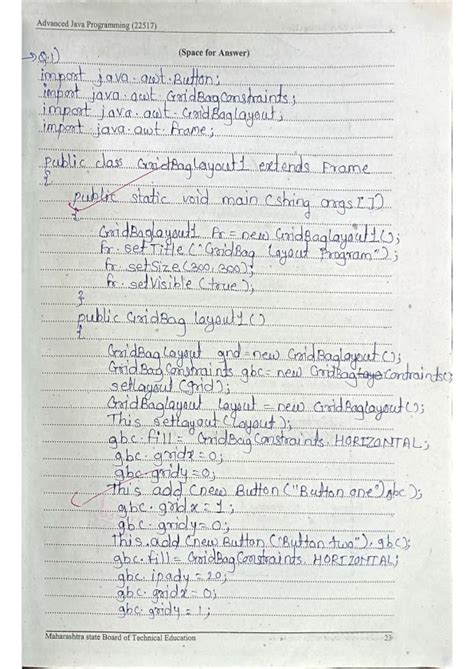 Advanced Java Programming (22517)
(Space for Answer)
→Q.1)
import java.awt.Button;
import java.awt.GridBagConstraints;
import java.awt.GridBagLayout;
import java.awt.Frame;
public class GridBaglayout1 extends Frame
{
public static void main (string args[])
{
GridBaglayout1 fr = new GridBaglayout1();
fr.setTitle ("GridBag Layout Program");
fr.setSize(300,300);
fr.setVisible (true);
}
public GridBag layout1()
{
GridBag Layout grid = new GridBaglayout();
GridBag Constraints gbc = new GridBag Contraints();
setlayout(grid);
GridBaglayout layout = new GridBaglayout();
This setlayout (layout);
gbc.fill = GridBag Constraints.HORIZONTAL;
gbc.gridx = 0;
gbc.gridy = 0;
This add (new Button ("Button one") gbc);
gbc.gridx = 1;
gbc.gridy = 0;
This.add (new Button ("Button two"), gbc);
gbc.fill = GridBag Constraints. HORIZONTAL;
gbc. ipady = 20;
gbc.gridx = 0;
gbc.gridy = 1;
Maharashtra state Board of Technical Education
23